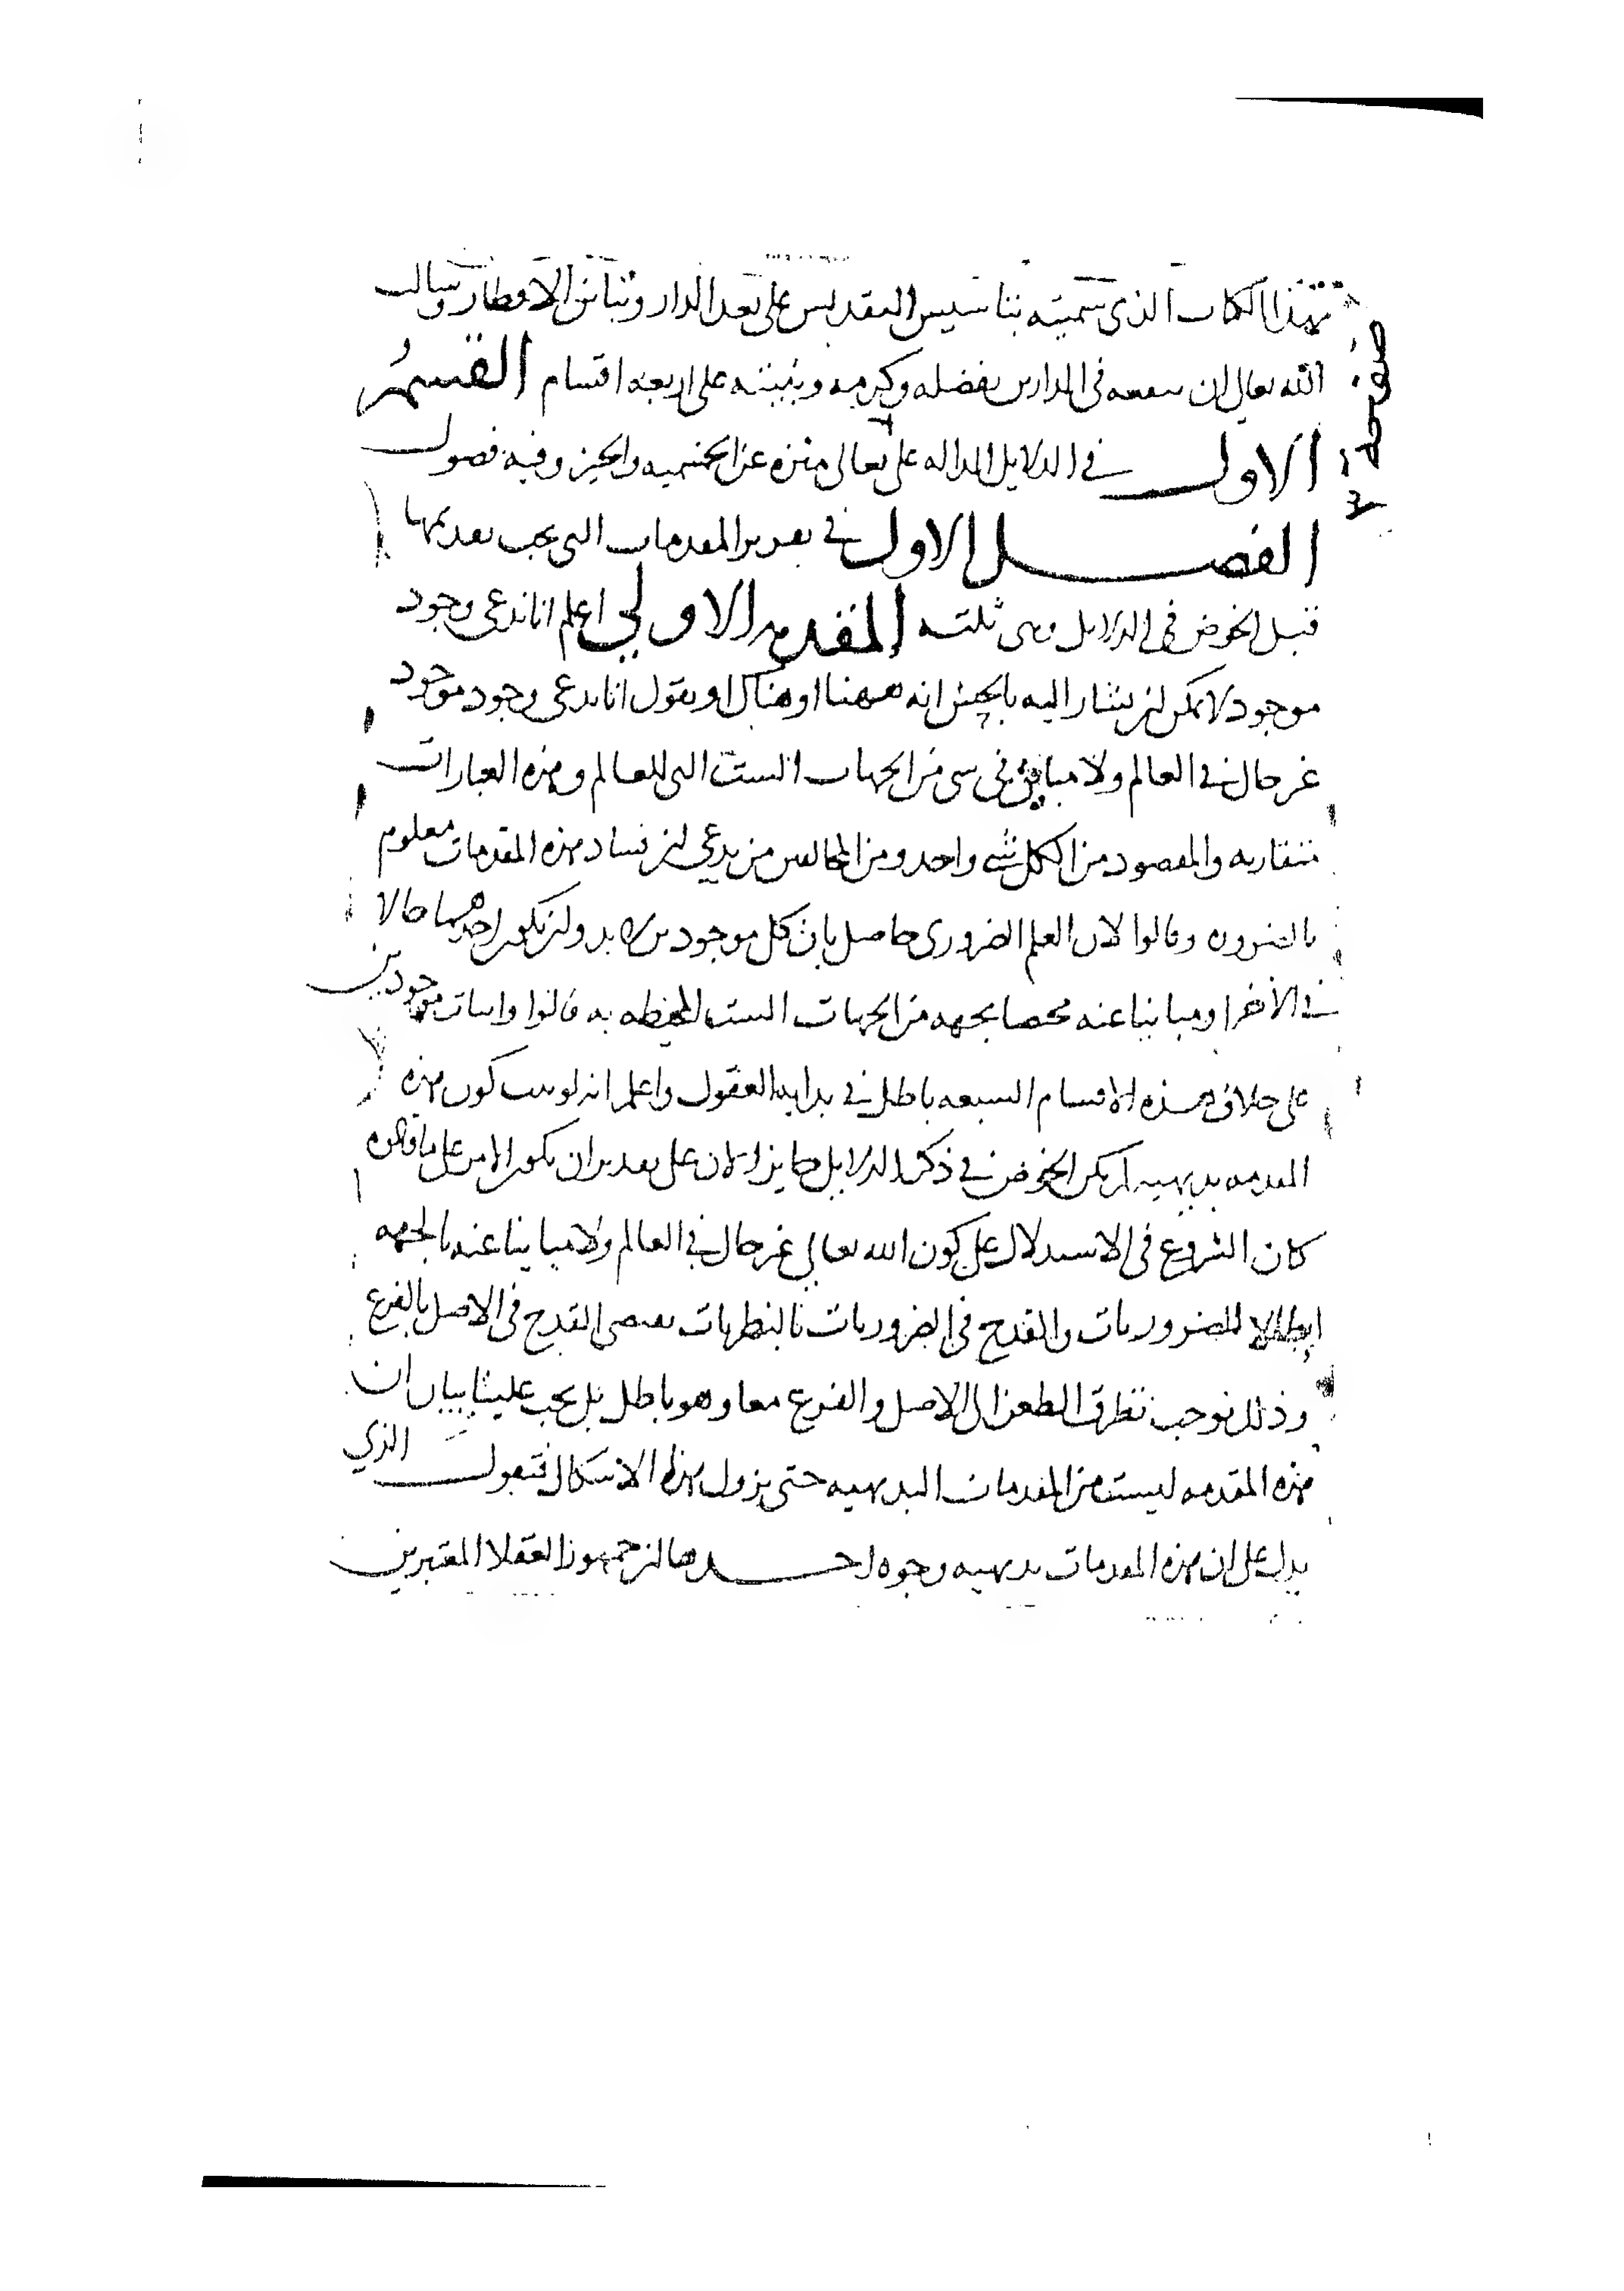 بهذا الكتاب الذى سميته بتاسيس التقديس على بعد الدار وتباين الاقطار وسالت
الله تعالى ان ينفعنا به فى الدارين بفضله وكرمه ورتبته على اربعه اقسام القسم
الاول فى الدلايل الداله على تعالى منزه عن الجسميه والحيز وفيه فصول
الفصل الاول فى تقرير المقدمات التى يجب تقديمها
قبل الخوض فى الدلايل وهى ثلثه المقدمه الاولى اعلم انا ندعى وجود
موجود لا يمكن ان يشار اليه بالحس انه ههنا او هناك او نقول انا ندعى وجود موجود
غير حال فى العالم ولا مباين فى شى من الجهات الست التى للعالم وهذه العبارات
متقاربه والمقصود من الكل شى واحد ومن المخالفين من يدعى ان فساد هذه المقدمات معلوم
بالضروره وقالوا لان العلم الضرورى حاصل بان كل موجودين لا بد وان يكون احدهما حالا
فى الاخر او مباينا عنه مختصا بجهه من الجهات الست المحيطه به قالوا واثبات موجودين
على خلاف هذه الاقسام السبعه باطل فى بدايه العقول واعلم انه لو ثبت كون هذه
المقدمه بديهيه لم يكن الخوض فى ذكر الدلايل جايزا لان على تقدير ان يكون الامر على ما قالوه
كان الشروع فى الاستدلال على كون الله تعالى غير حال فى العالم ولا مباينا عنه بالجهه
ابطالا للضروريات والقدح فى الضروريات بالنظريات يقتضى القدح فى الاصل بالفرع
وذلك يوجب تطرق الطعن الى الاصل والفرع معا وهو باطل بل يجب علينا بيان ان
هذه المقدمه ليست من المقدمات البديهيه حتى يزول هذا الاشكال فنقول الذي
يدل على ان هذه المقدمات بديهيه وجوه احدها ان جمهور العقلا المعتبرين